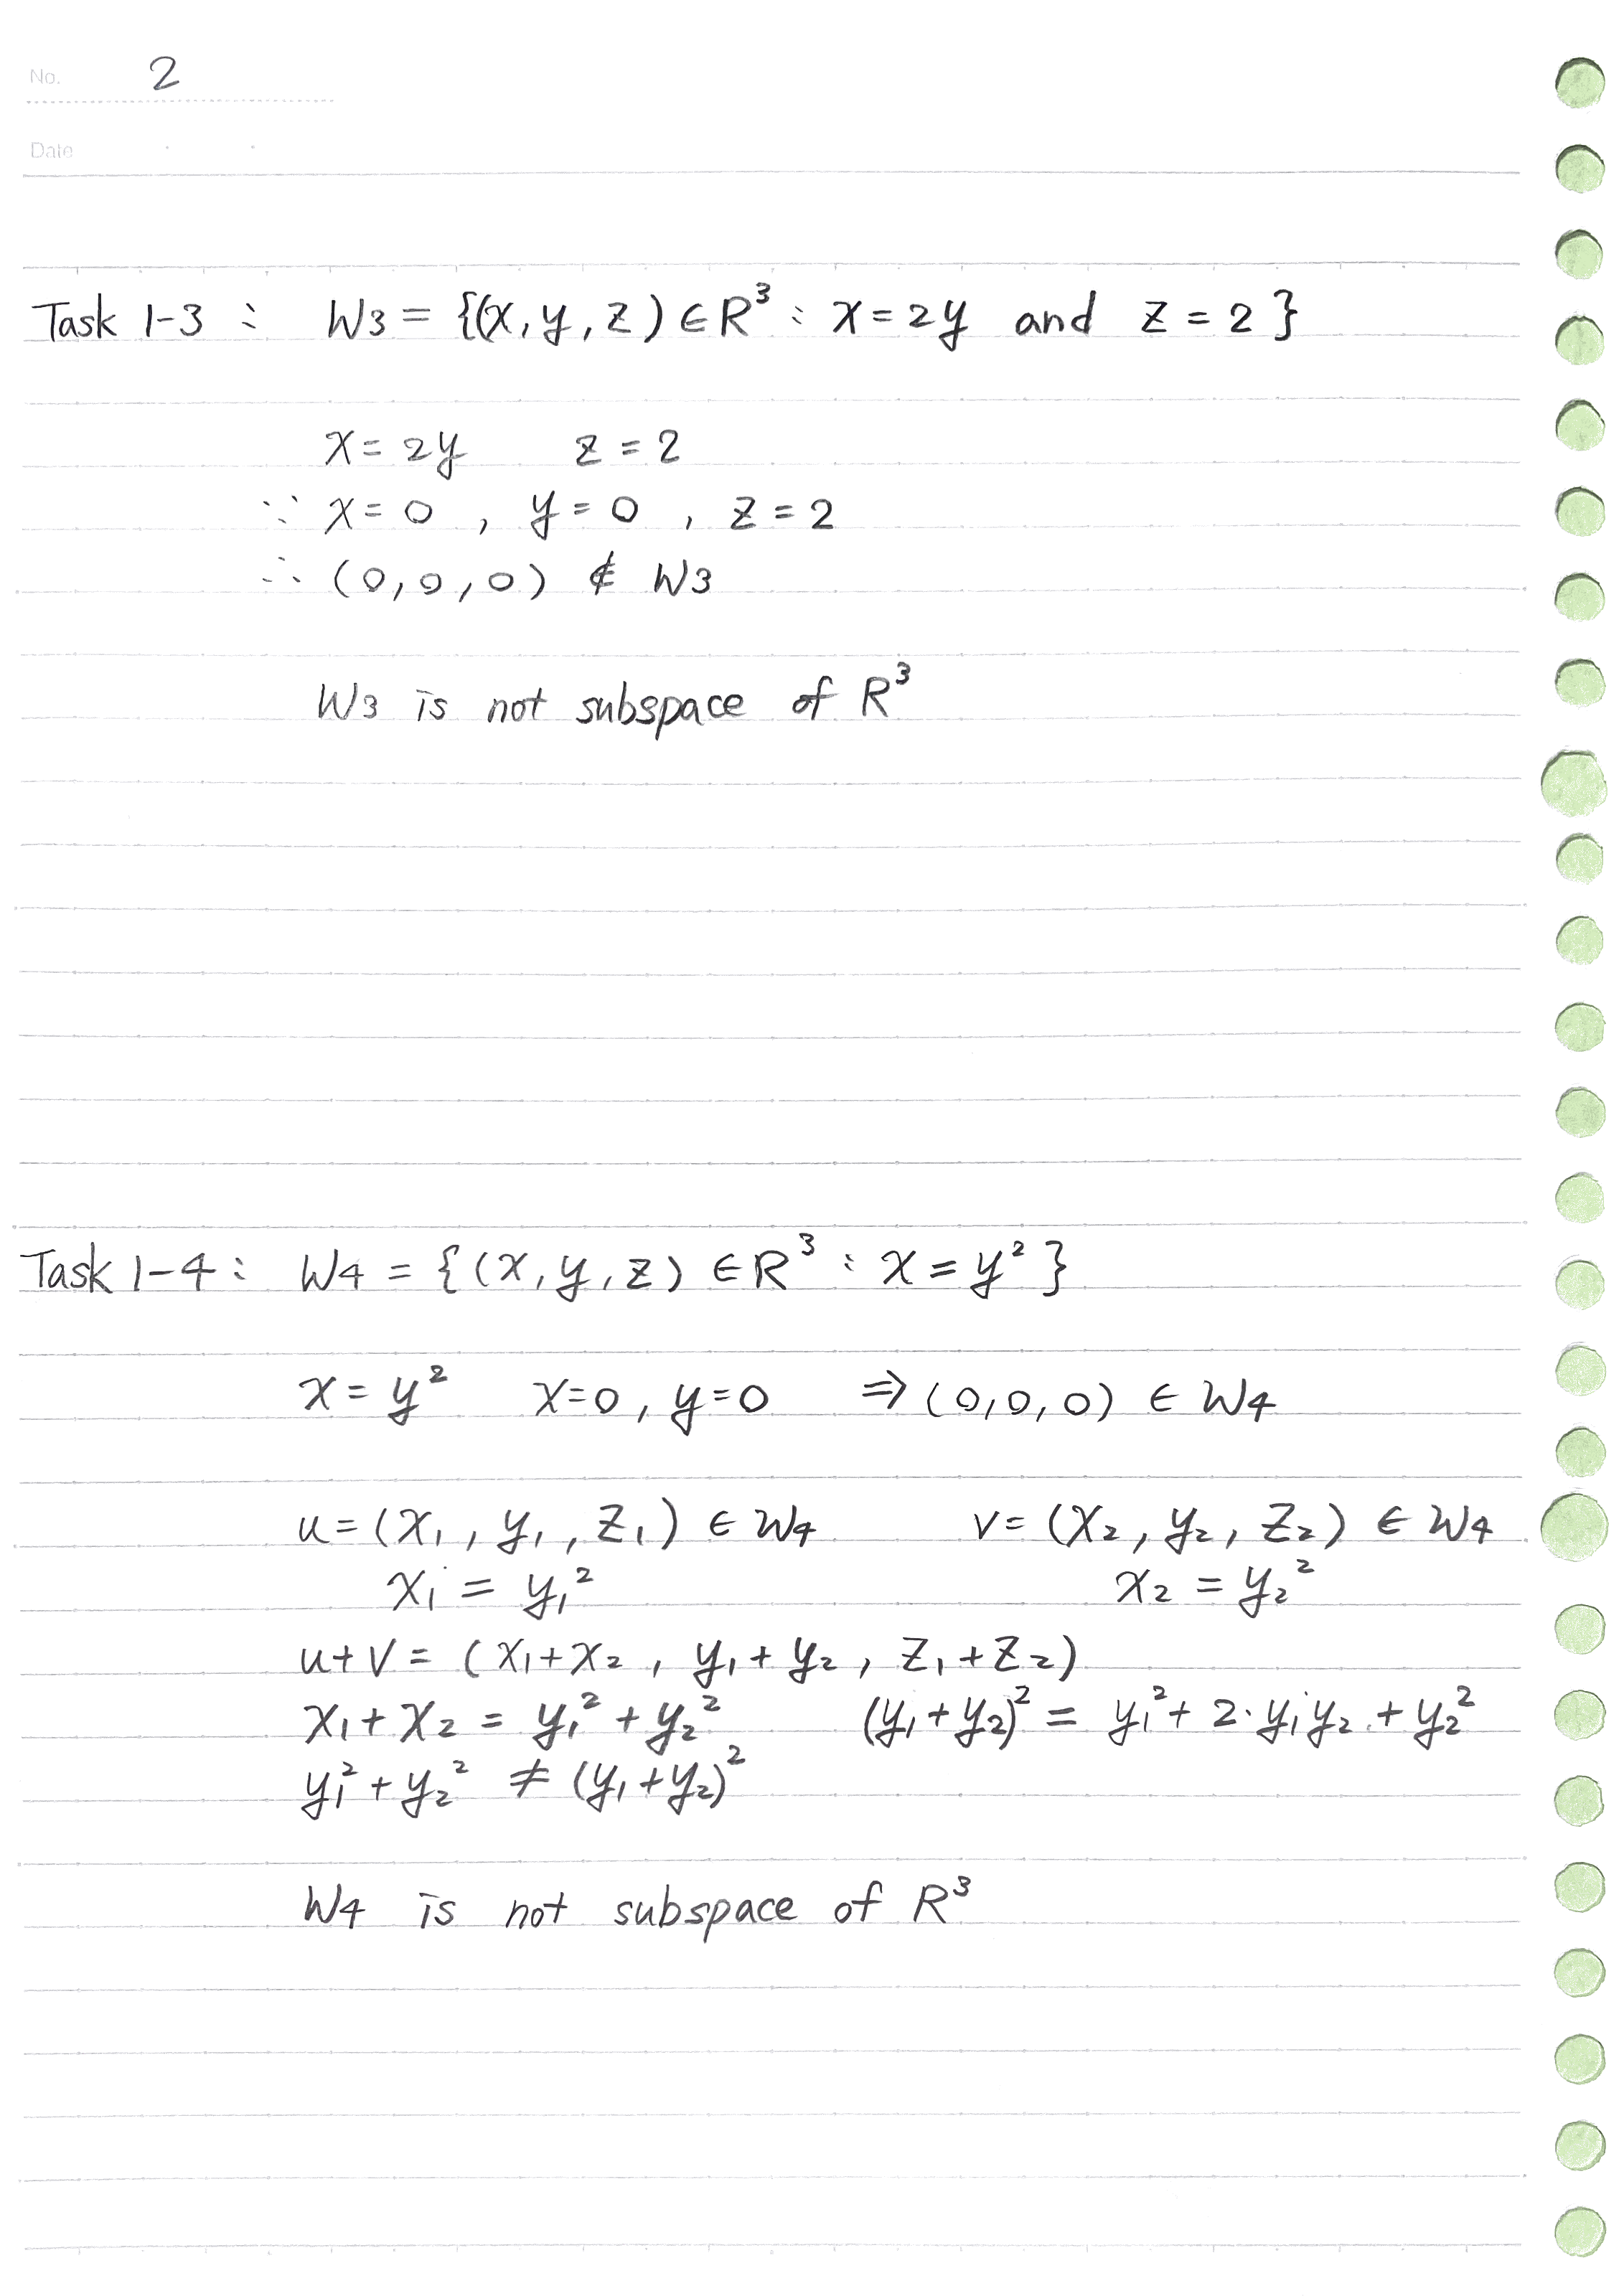 No. 2
Date
Task 1-3 : W3 = {(x, y, z) ∈ R³ : x = 2y and z = 2 }
x = 2y z = 2
∵ x = 0 , y = 0 , z = 2
∴ (0, 0, 0) ∉ W3
W3 is not subspace of R³
Task 1-4 : W4 = {(x, y, z) ∈ R³ : x = y² }
x = y² x=0, y=0 ⇒ (0, 0, 0) ∈ W4
u = (x₁, y₁, z₁) ∈ W4 v = (x₂, y₂, z₂) ∈ W4
x₁ = y₁² x₂ = y₂²
u+v = (x₁+x₂, y₁+y₂, z₁+z₂)
x₁+x₂ = y₁²+y₂² (y₁+y₂)² = y₁²+2·y₁y₂+y₂²
y₁²+y₂² ≠ (y₁+y₂)²
W4 is not subspace of R³